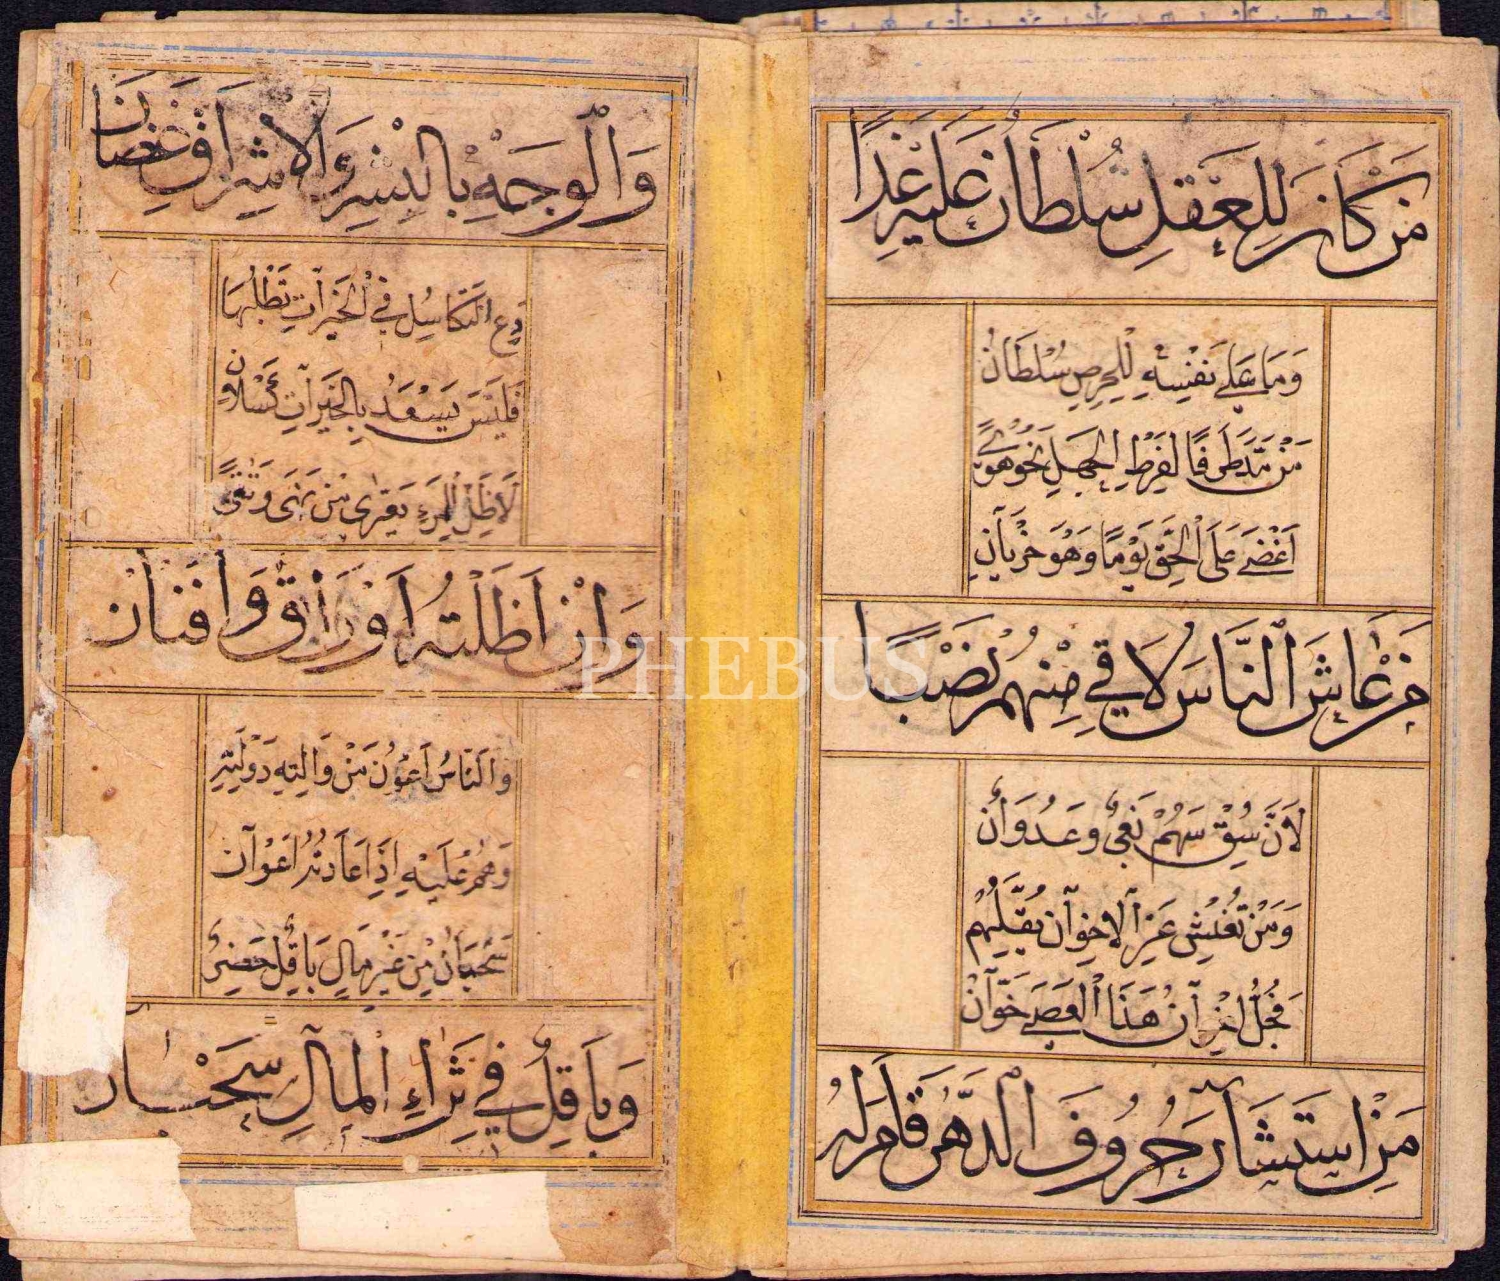 من كان للعقل سلطان عليه غدا
وما على نفسه للحرص سلطان
من مد طرفا لفرط الجهل نحو هوى
اغضى على الحق يوما وهو خزيان
من عاشر الناس لاقى منهم نصبا
لان بغي وعدوان
ومن تفتيش عن الاخوان يقليهم
فجل اخوان هذا العصر خوان
من استشار صروف الدهر قام له
والوجه بالبشر والاشراق غضان
دع التكاسل في الخيرات تطلبها
فليس يسعد بالخيرات كسلان
لا ظل للمرء يعرى من نهى وتقى
وان اظلته اوراق وافنان
والناس اعوان من والته دولته
وهم عليه اذا عادته اعوان
سحبان من غير مال باقل حصر
وباقل في ثراء المال سحبان
PHEBUS